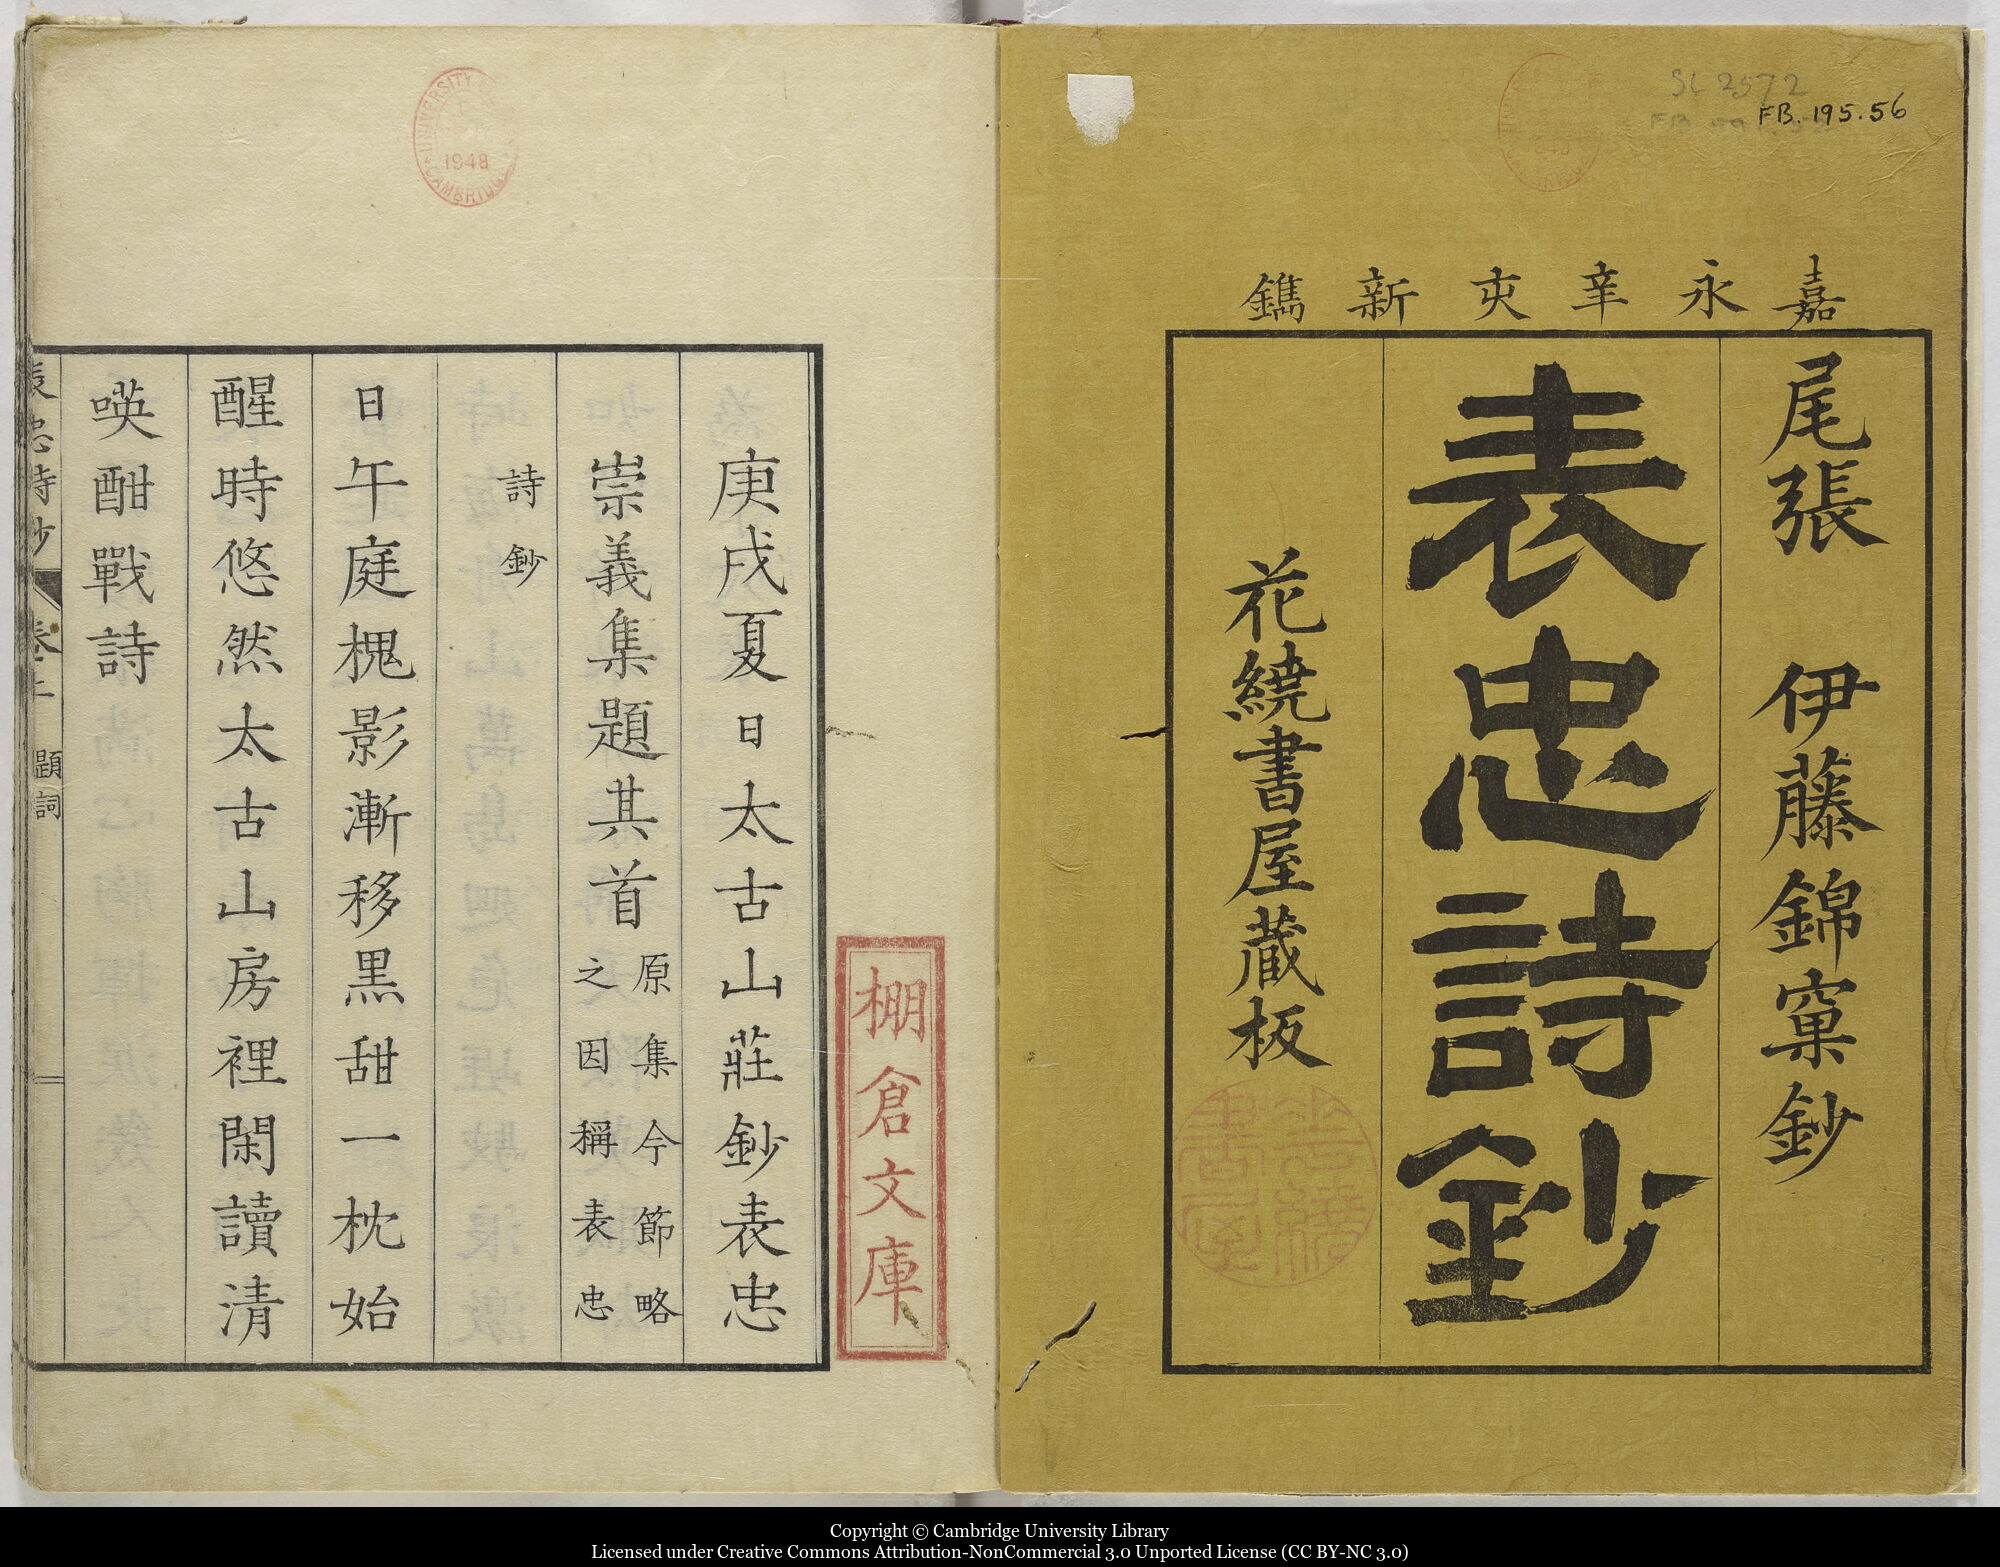 SL 2572
FB. 195.56
嘉永辛亥新鐫
尾張 伊藤錦窠鈔
表忠詩鈔
花繞書屋蔵板
棚倉文庫
UNIVERSITY
1948
CAMBRIDGE
庚戌夏日太古山莊鈔表忠
崇義集題其首原集今節略
之因稱表忠
詩鈔
日午庭槐影漸移黒甜一枕始
醒時悠然太古山房裡閑讀清
暎酣戰詩
表忠詩鈔 卷上 題詞
Copyright © Cambridge University Library
Licensed under Creative Commons Attribution-NonCommercial 3.0 Unported License (CC BY-NC 3.0)